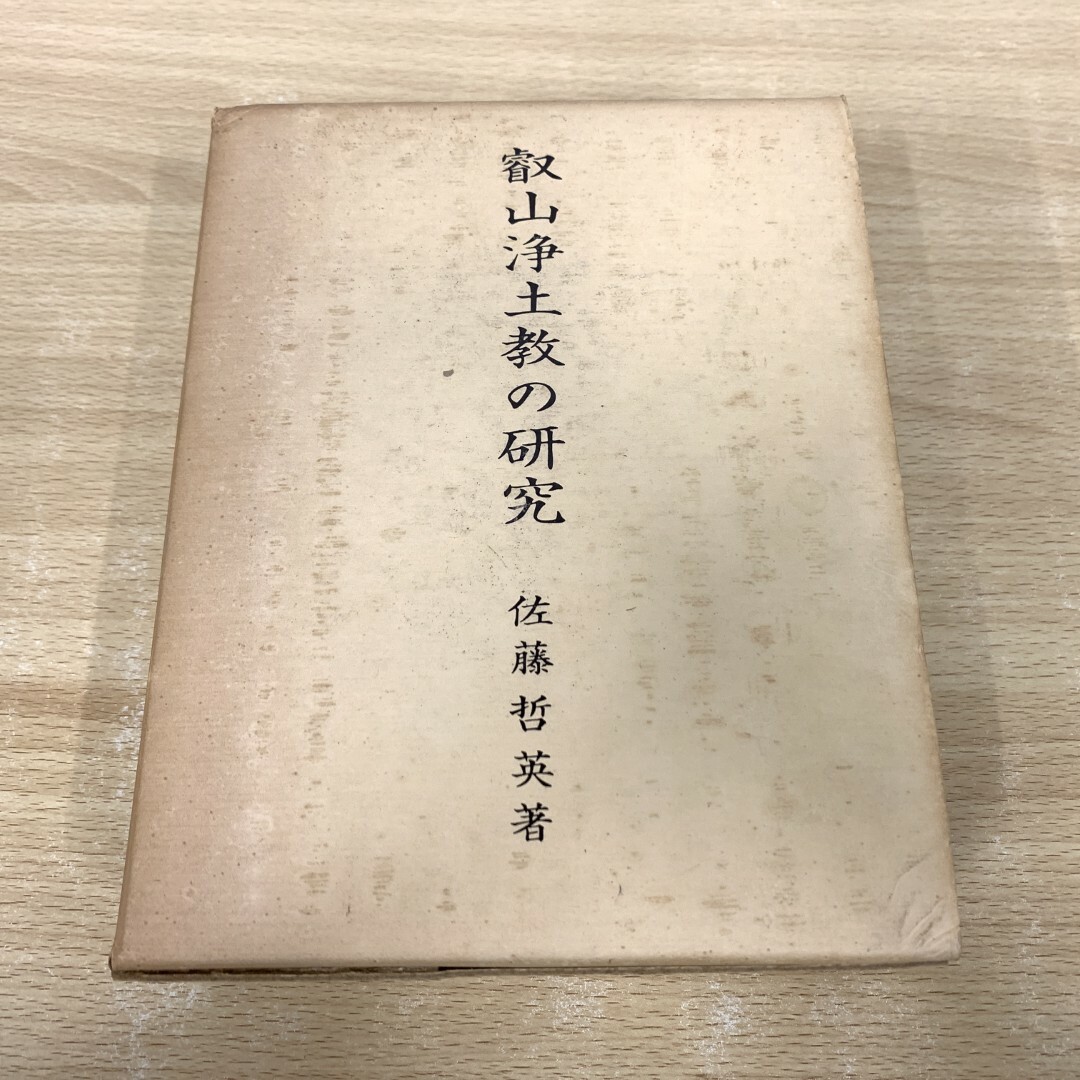 叡山浄土教の研究 佐藤哲英著